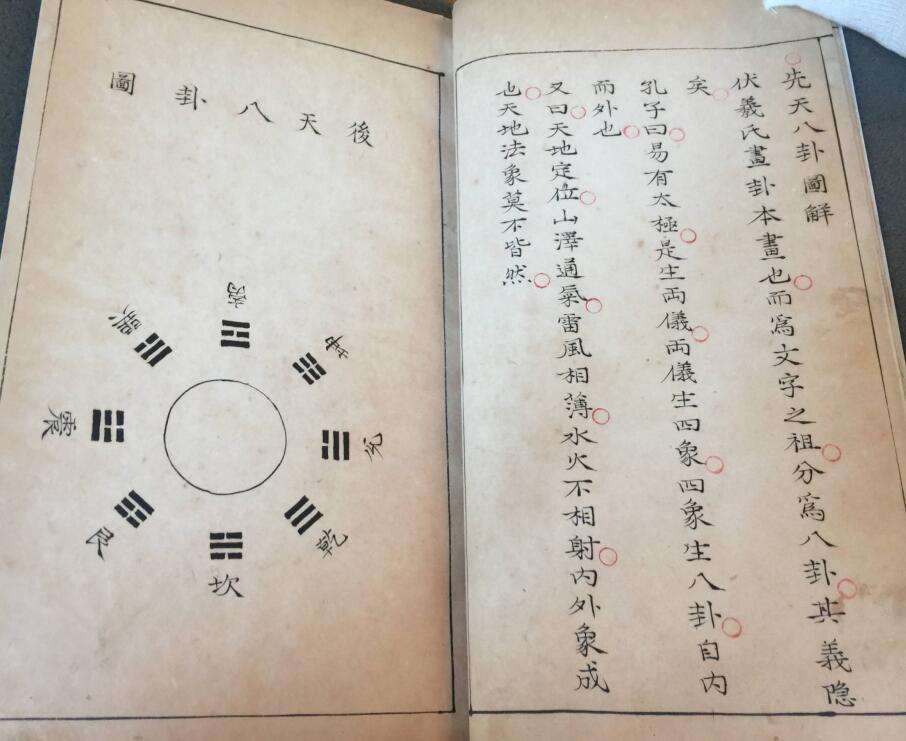 先天八卦圖解
伏羲氏畫卦本畫也而爲文字之祖分爲八卦其義隐
矣
孔子曰易有太極是生両儀両儀生四象四象生八卦自内
而外也
又曰天地定位山澤通氣雷風相薄水火不相射内外象成
也天地法象莫不皆然
後天八卦圖
离
坤
兌
乾
坎
艮
震
巽